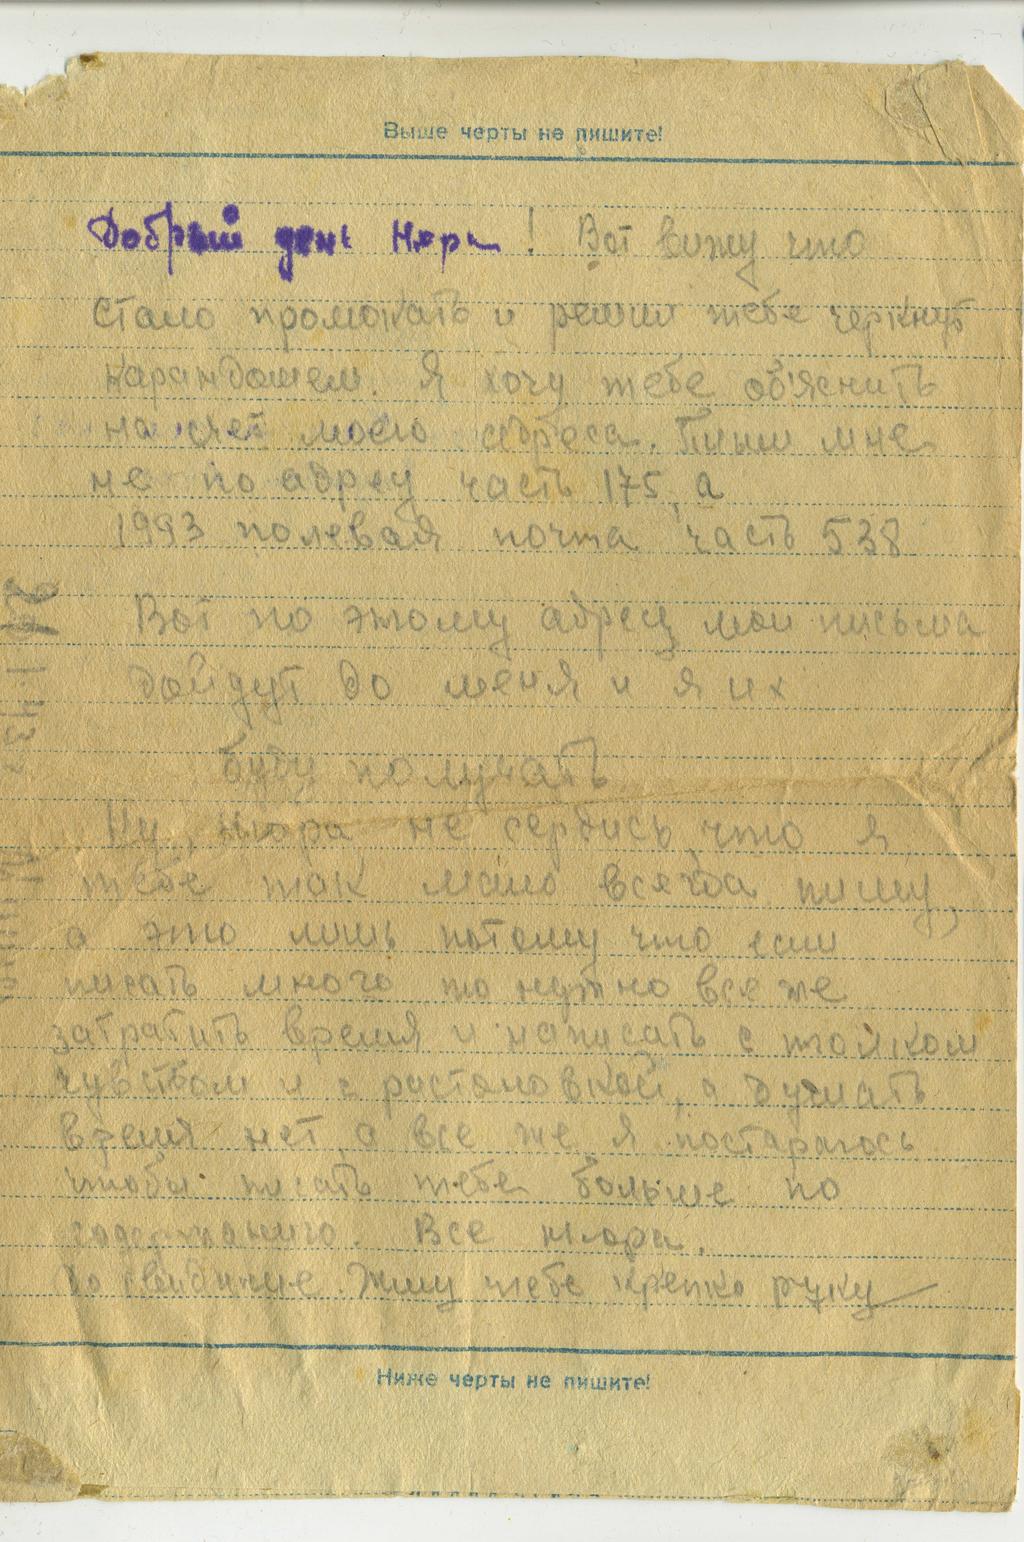 Выше черты не пишите!
Добрый день Нюра! Вот вижу что
стало промокать и решил тебе черкнуть
карандашем. Я хочу тебе об'яснить
на счет моего адреса. Пиши мне
не по адресу часть 175, а
1993 полевая почта часть 538
Вот по этому адресу мои письма
дойдут до меня и я их
буду получать
Ну, Нюра не сердись, что я
тебе так мало всегда пишу,
а это лишь потому что если
писать много то нужно все же
затратить время и написать с толком
чувством и с растоновкой, а думать
время нет, а все же я постараюсь
чтобы писать тебе больше по
содержанию. Все Нюра.
До свидание. Жму тебе крепко руку
Ниже черты не пишите!